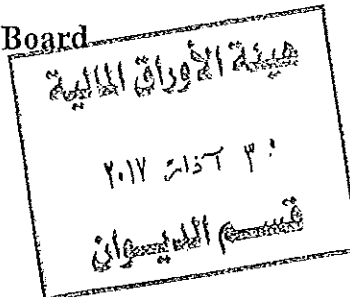 Board
هيئة الأوراق المالية
٣٠ آذار ٢٠١٧
قسم الديوان